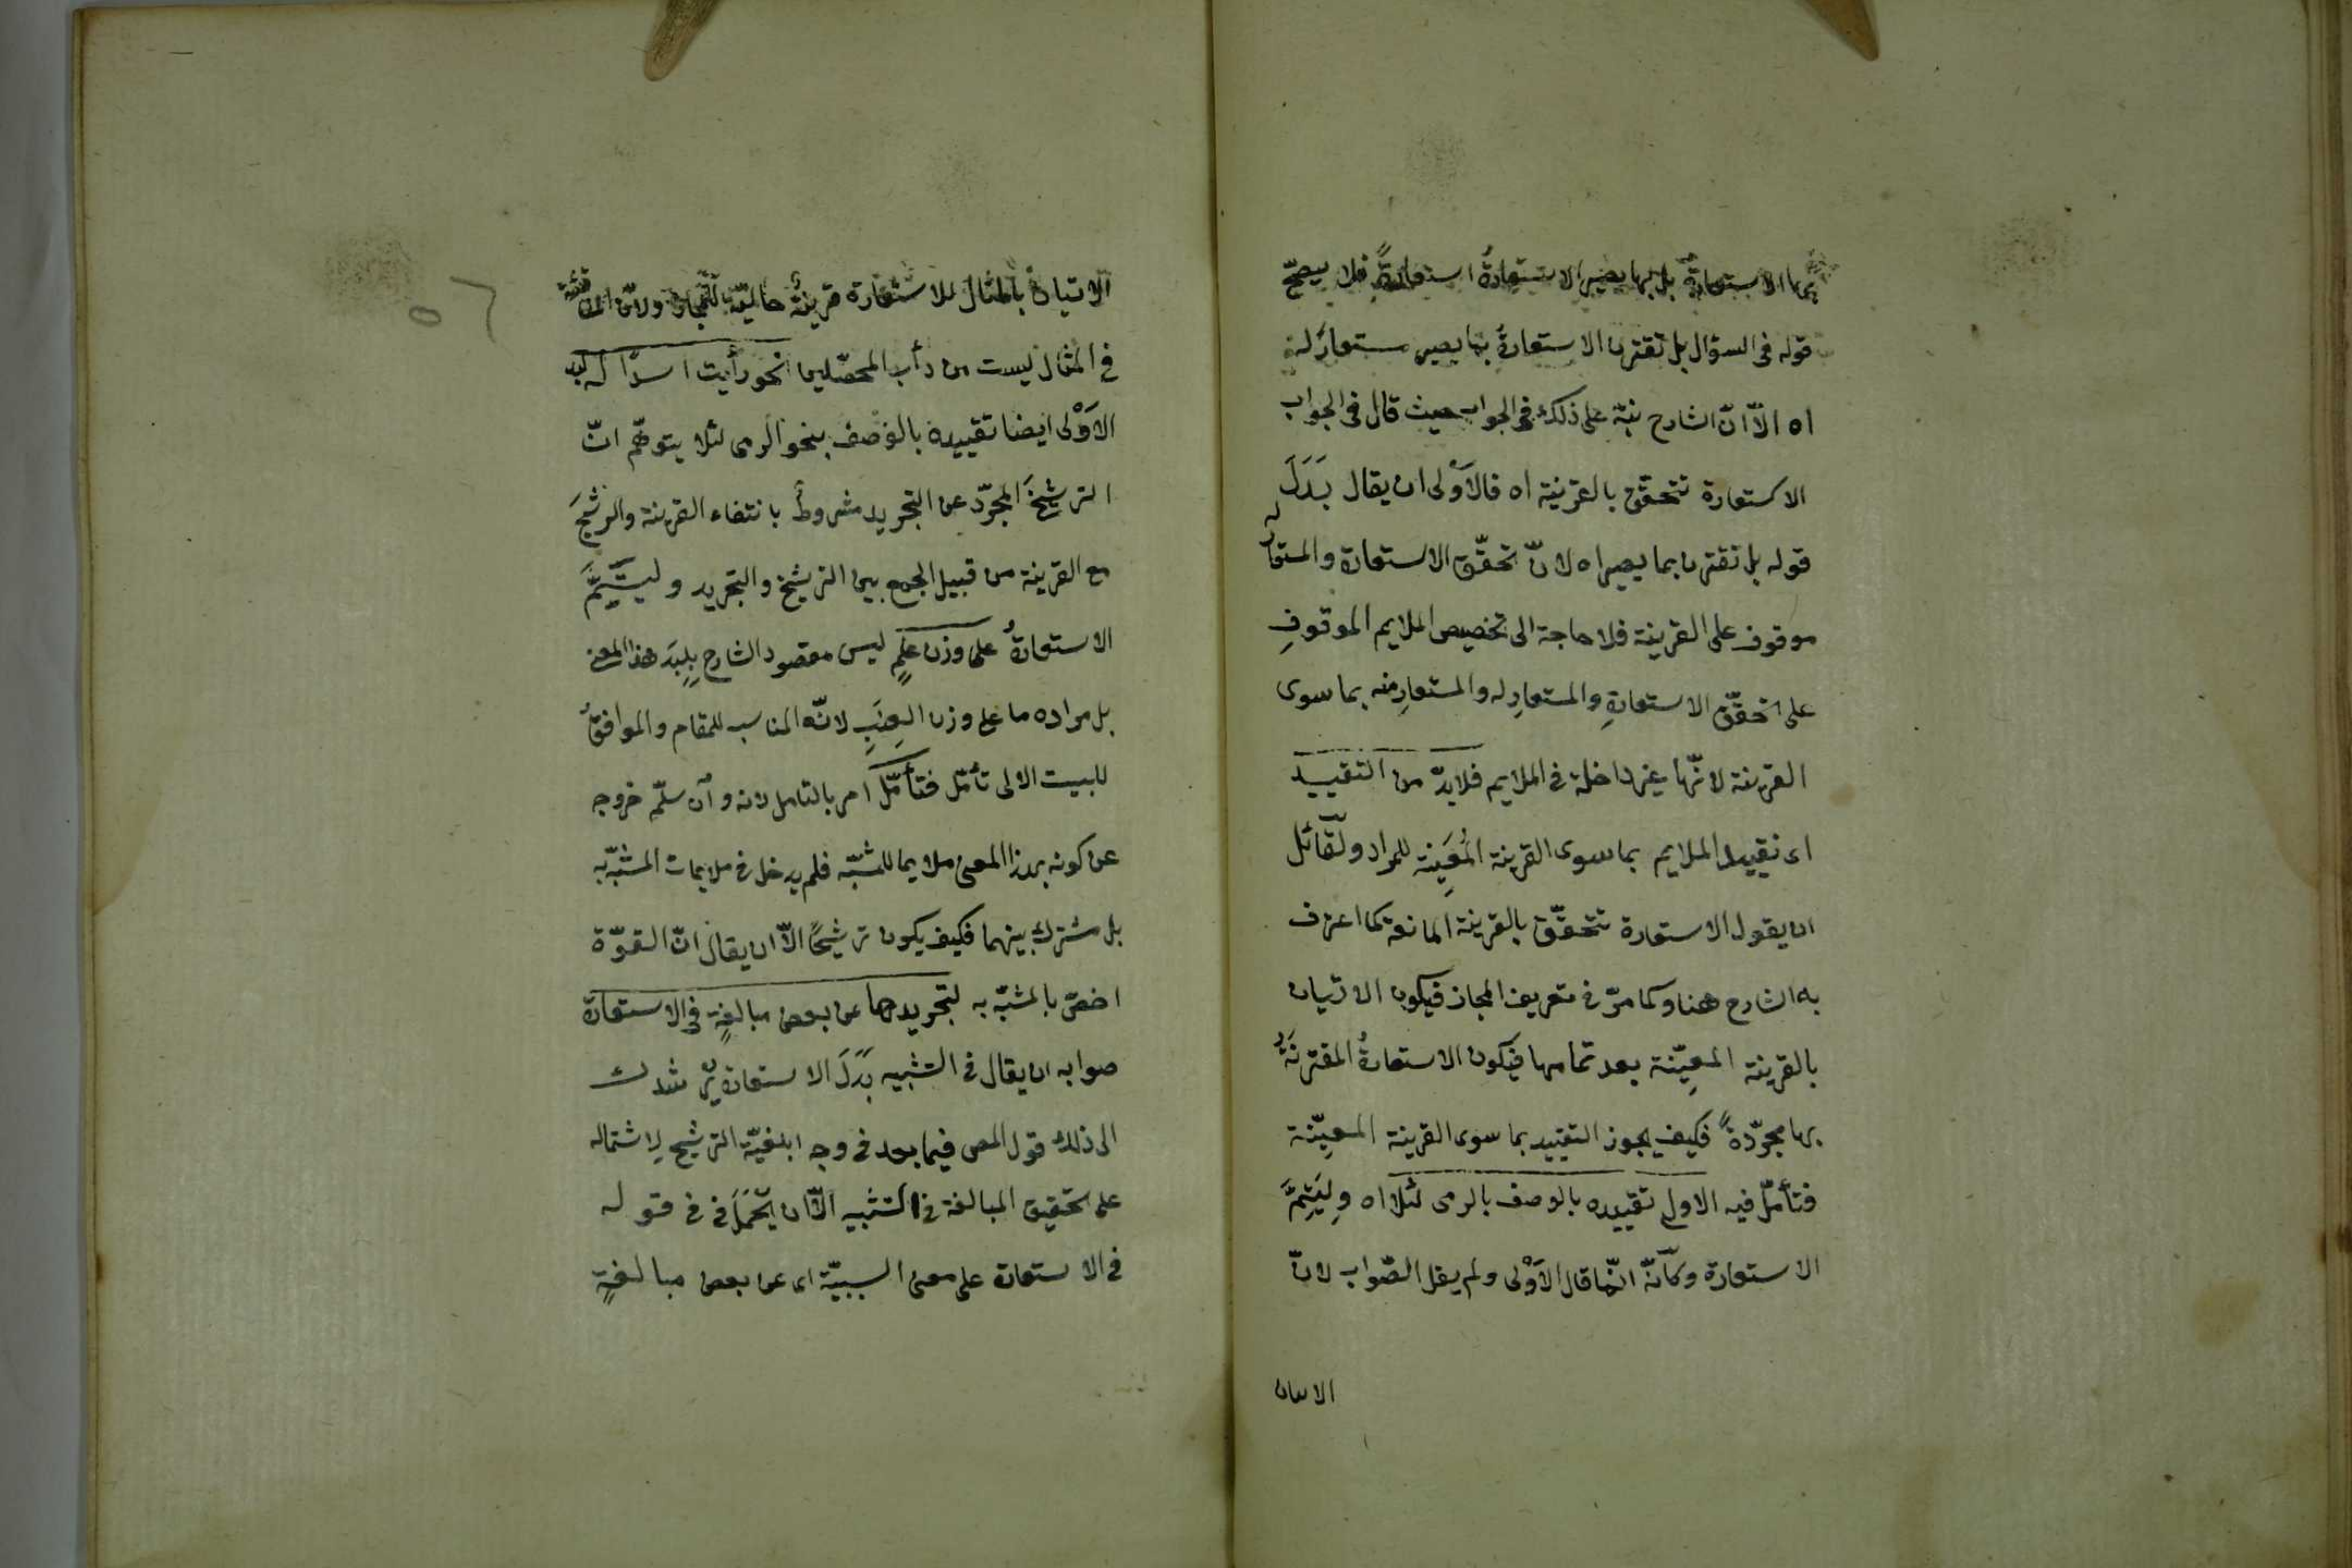 بها الاستعارةُ بل بها يصير الاستعارةُ استعارةً فلا يصحّ
قوله فى السؤال بل تقترن الاستعارةُ بما يصير مستعارٌ له
اه الّا انّ الشارح نبّه على ذلك فى الجواب حيث قال فى الجواب
الاستعارة تتحقّق بالقرينة اه فالاَوْلى ان يقال بَدَلَ
قوله بل تقترن بما يصير اه لانّ تحقّق الاستعارة والمستعار له
موقوف على القرينة فلا حاجة الى تخصيص الملايم الموقوفِ
على تحقّق الاستعارةِ والمستعارِ له والمستعارِ منه بما سوى
القرينة لانّها غير داخلة فى الملايم فلا بدّ من التقييد
اى تقييد الملايم بما سوى القرينة المُعَيِنة للمراد ولقائل
ان يقول الاستعارة تتحقّق بالقرينة المانعة كما اعترف
به الشارح هنا وكما مرّ فى تعريف المجاز فيكون الاتيان
بالقرينة المعيِّنة بعد تمامها فيكون الاستعارةُ المقترنةُ
بها مجرّدةً فكيف يجوز التقييد بما سوى القرينة المعيِّنة
فتأمّل فيه الاولى تقييده بالوصف بالرمى لئلا اه وليَتِمَّ
الاستعارة وكأنّه انّما قال الاَوْلى ولم يقل الصّواب لانّ
الاتيان
الاتيان بالمثال للاستعارة قرينةٌ حاليّة للتجوّز ولانّ المناقشة
فى المثال ليست من دأب المحصّلين نحو رأيت اسدًا له لبد
الاَوْلى ايضا تقييده بالوصف بنحو الرمى لئلا يتوهّم انّ
الترشيحَ المجرّد عن التجريد مشروطٌ بانتفاء القرينة والترشيحَ
مع القرينة من قبيل الجمع بين الترشيح والتجريد وليتيّمَ
الاستعارةُ على وزن عَلِمٍ ليس مقصود الشارح بلِبَد هذا المعنى
بل مراده ما على وزن العِنَبِ لانّه المناسب للمقام والموافقُ
للبيت الاتى تأمّل فتأمّل امر بالتامل لانه وان سلّم خروجه
عن كونه بهذا المعنى ملايما للمشبّه فلم يدخل فى ملايمات المشبّه به
بل مشترك بينهما فكيف يكون ترشيحًا الّا ان يقال انّ القوّة
اخصّ بالمشبّه به لتجريدها عن بعض مبالغةٍ فى الاستعارة
صوابه ان يقال فى التشبيه بَدَلَ الاستعارة يرشدك
الى ذلك قول المص فيما بعد فى وجه ابلغيّة الترشيح لاِشتماله
على تحقيق المبالغة فى التشبيه الّا ان يُحْمَلَ فى فى قوله
فى الاستعارة على معنى السببيّة اى عن بعض مبالغةٍ